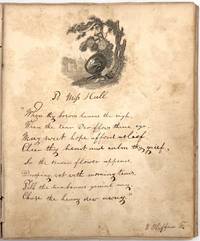 To Miss Hull
"When thy bosom heaves the sigh,
When the tear o'erflows thine eye
May sweet hope afford relief
Cheer thy heart and calm thy grief.
So the tender flower appears
Drooping wet with morning tears
Till the sunbeams genial ray
Chase the heavy dew away"